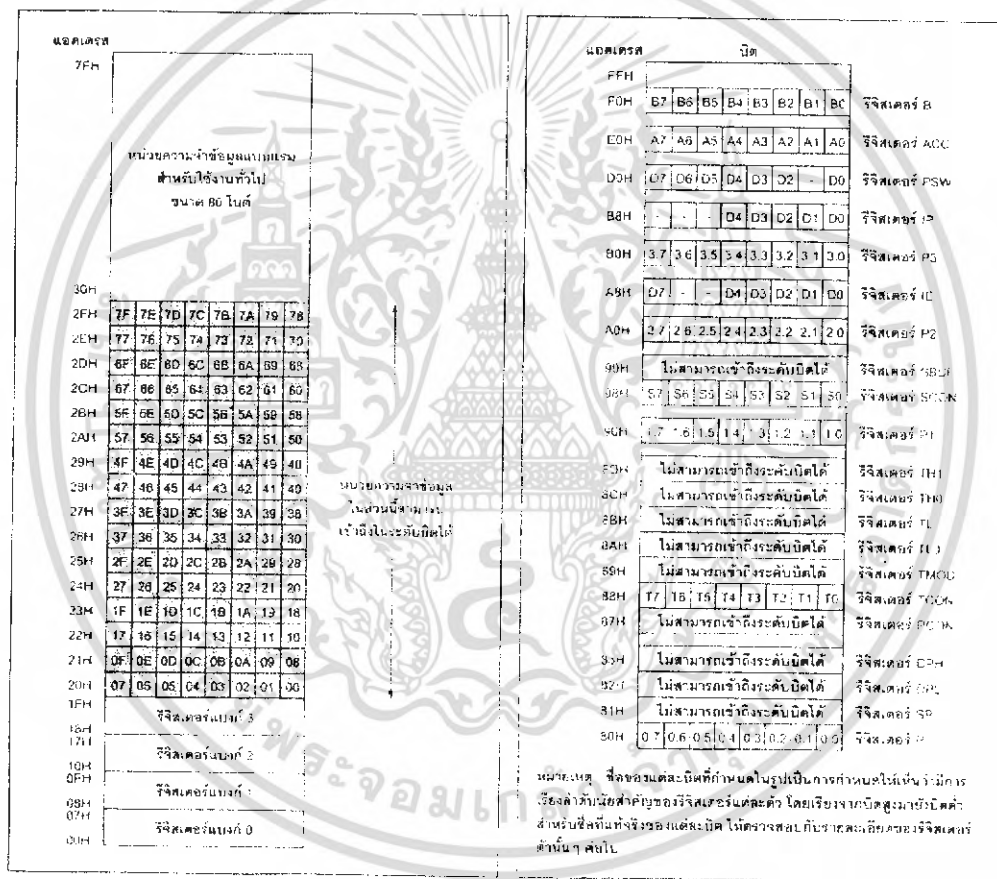 แอดเดรส
7FH
หน่วยความจำข้อมูลแบบแรม
สำหรับใช้งานทั่วไป
ขนาด 80 ไบต์
30H
2FH 7F 7E 7D 7C 7B 7A 79 78
2EH 77 76 75 74 73 72 71 70
2DH 6F 6E 6D 6C 6B 6A 69 68
2CH 67 66 65 64 63 62 61 60
2BH 5F 5E 5D 5C 5B 5A 59 58
2AH 57 56 55 54 53 52 51 50
29H 4F 4E 4D 4C 4B 4A 49 48
28H 47 46 45 44 43 42 41 40
27H 3F 3E 3D 3C 3B 3A 39 38
26H 37 36 35 34 33 32 31 30
25H 2F 2E 2D 2C 2B 2A 29 28
24H 27 26 25 24 23 22 21 20
23H 1F 1E 1D 1C 1B 1A 19 18
22H 17 16 15 14 13 12 11 10
21H 0F 0E 0D 0C 0B 0A 09 08
20H 07 06 05 04 03 02 01 00
หน่วยความจำข้อมูล
ในส่วนนี้สามารถ
เข้าถึงในระดับบิตได้
1FH
รีจิสเตอร์แบงก์ 3
18H
17H
รีจิสเตอร์แบงก์ 2
10H
0FH
รีจิสเตอร์แบงก์
08H
07H
รีจิสเตอร์แบงก์ 0
00H
แอดเดรส บิต
FFH
F0H B7 B6 B5 B4 B3 B2 B1 B0 รีจิสเตอร์ B
E0H A7 A6 A5 A4 A3 A2 A1 A0 รีจิสเตอร์ ACC
D0H D7 D6 D5 D4 D3 D2 - D0 รีจิสเตอร์ PSW
B8H - - - D4 D3 D2 D1 D0 รีจิสเตอร์ IP
B0H 3.7 3.6 3.5 3.4 3.3 3.2 3.1 3.0 รีจิสเตอร์ P3
A8H D7 - - D4 D3 D2 D1 D0 รีจิสเตอร์ IE
A0H 2.7 2.6 2.5 2.4 2.3 2.2 2.1 2.0 รีจิสเตอร์ P2
99H ไม่สามารถเข้าถึงระดับบิตได้ รีจิสเตอร์ SBUF
98H S7 S6 S5 S4 S3 S2 S1 S0 รีจิสเตอร์ SCON
90H 1.7 1.6 1.5 1.4 1.3 1.2 1.1 1.0 รีจิสเตอร์ P1
ไม่สามารถเข้าถึงระดับบิตได้ รีจิสเตอร์ TH1
8CH ไม่สามารถเข้าถึงระดับบิตได้ รีจิสเตอร์ TH0
8BH ไม่สามารถเข้าถึงระดับบิตได้ รีจิสเตอร์
8AH ไม่สามารถเข้าถึงระดับบิตได้ รีจิสเตอร์
89H ไม่สามารถเข้าถึงระดับบิตได้ รีจิสเตอร์ TMOD
88H T7 T6 T5 T4 T3 T2 T1 T0 รีจิสเตอร์ TCON
87H ไม่สามารถเข้าถึงระดับบิตได้ รีจิสเตอร์ PCON
ไม่สามารถเข้าถึงระดับบิตได้ รีจิสเตอร์ DPH
82H ไม่สามารถเข้าถึงระดับบิตได้ รีจิสเตอร์ DPL
81H ไม่สามารถเข้าถึงระดับบิตได้ รีจิสเตอร์ SP
80H 0.7 0.6 0.5 0.4 0.3 0.2 0.1 0.0 รีจิสเตอร์
หมายเหตุ ชื่อของแต่ละบิตที่กำหนดในรูปเป็นการกำหนดให้เห็นว่ามีการ
เรียงลำดับนัยสำคัญของรีจิสเตอร์แต่ละตัว โดยเรียงจากบิตสูงมายังบิตต่ำ
สำหรับชื่อที่แท้จริงของแต่ละบิต ให้ตรวจสอบกับรายละเอียดของรีจิสเตอร์
ตัวนั้น ๆ ต่อไป